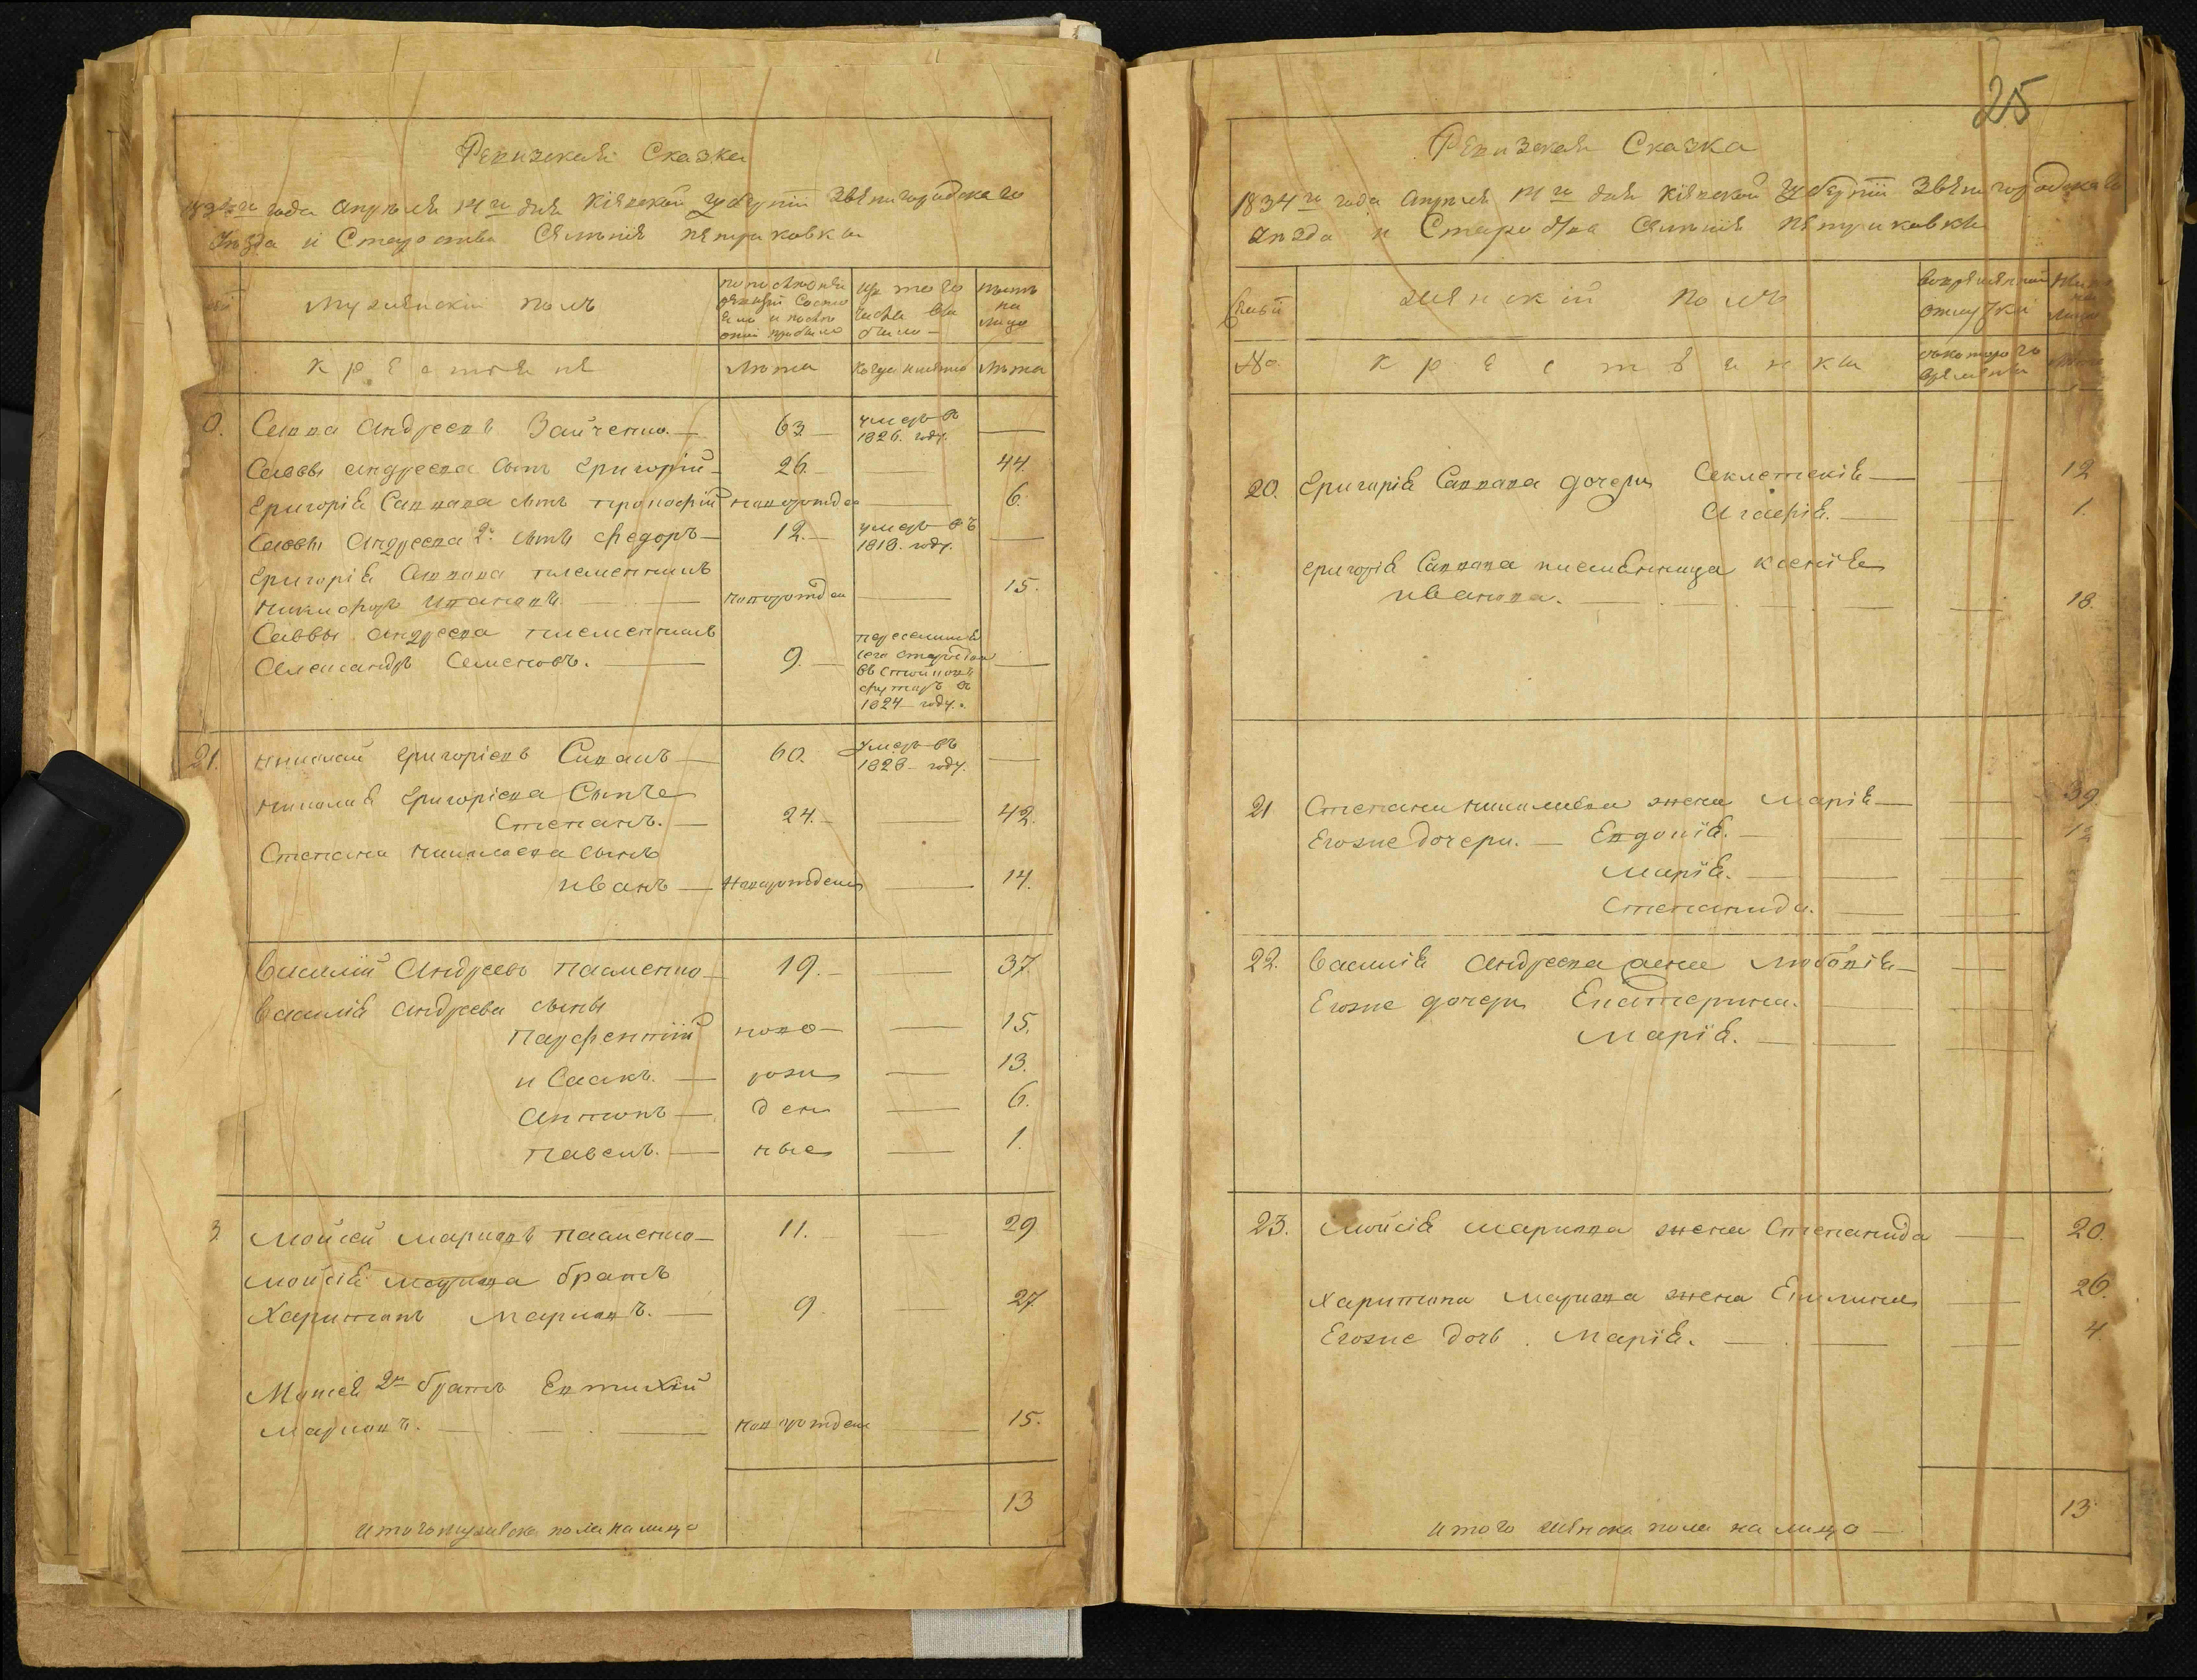 Ревизская Сказка
1834го года Апреля 14го дня Кіевской Губерніи Звенигородскаго
Уезда и Староства Селенія Петриковки
Мужескій полъ
По последней ревизіи состояло и после оной прибыло
Изъ того числа выбыло
Ныне на лицо
Крестьяне
Лета
Когда именно
Лета
0. Савва Андреевъ Зайченко. 63 умеръ въ 1826. году.
Саввы Андреева сынъ Григорій 26. 44.
Григорія Саввава сынъ Прокофій новорожде 6.
Саввы Андреева 2й сынъ Федоръ 12. умеръ въ 1818. году.
Григорія Саввова племенникъ
Никифоръ Ивановъ. новорожден 15.
Саввы Андреева племенникъ
Александръ Семеновъ. 9.
въ
хуторъ въ
1824 году.
21. Николай Григоріевъ 60. Умеръ въ 1828 году.
Николая Григоріева Сынъ
Степанъ. 24. 42.
Степана Николаева сынъ
Иванъ Новорожденъ 14.
Василій Андреевъ Пасменко 19. 37.
Василія Андреева сыны
Парфентій ново 15.
Исаакъ. рож 13.
Антонъ ден 6.
Павелъ. ные 1.
3 Мойсей Марковъ Пасменко 11. 29
Мойсія Маркова братъ
Харитонъ Марковъ. 9. 27
Мойсея 2й братъ Евтихій
Марковъ. новорожден 15.
Итого мужеска пола на лицо 13
25
Ревизская Сказка
1834го года Апреля 14го дня Кіевской Губерніи Звенигородскаго
Уезда и Староства Селенія Петриковки
Женскій полъ
Во временной отлучки
Ныне на лицо
№
Крестьянки
Съ котораго времени
20. Григорія Саввава дочери Секлетекія 12
Агафія. 1.
Григорія Саввава племенница Ксенія
Иванова. 18.
21 Степана Николаева жена Марія 39.
Его же дочери. Евдокія. 12
Марія.
Степанида.
22. Василія Андреева жена Любовія
Его же дочери Екатерина.
Марія.
23. Мойсія Маркова жена Степанида 20.
Харитона Маркова жена 26.
Его же дочь. Марія. 4.
Итого женска пола на лицо 13